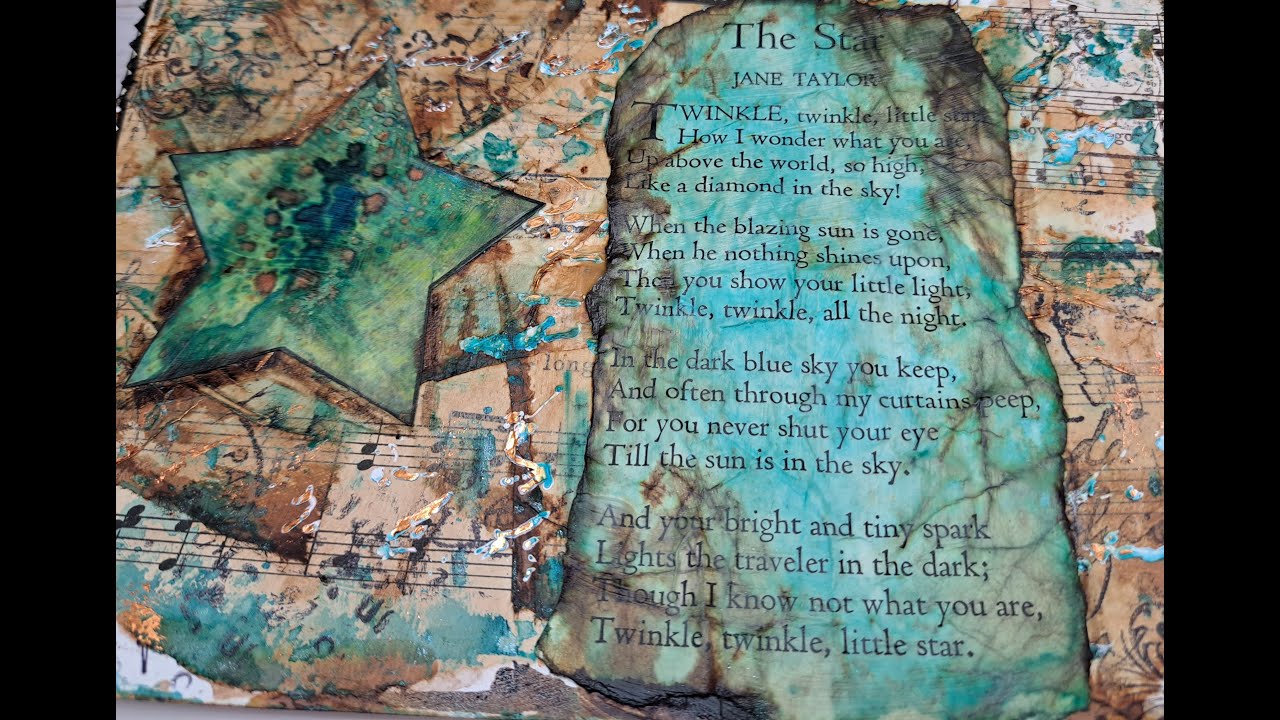 The Star
JANE TAYLOR
TWINKLE, twinkle, little star,
How I wonder what you are,
Up above the world, so high,
Like a diamond in the sky!
When the blazing sun is gone,
When he nothing shines upon,
Then you show your little light,
Twinkle, twinkle, all the night.
In the dark blue sky you keep,
And often through my curtains peep,
For you never shut your eye
Till the sun is in the sky.
And your bright and tiny spark
Lights the traveler in the dark;
Though I know not what you are,
Twinkle, twinkle, little star.
long